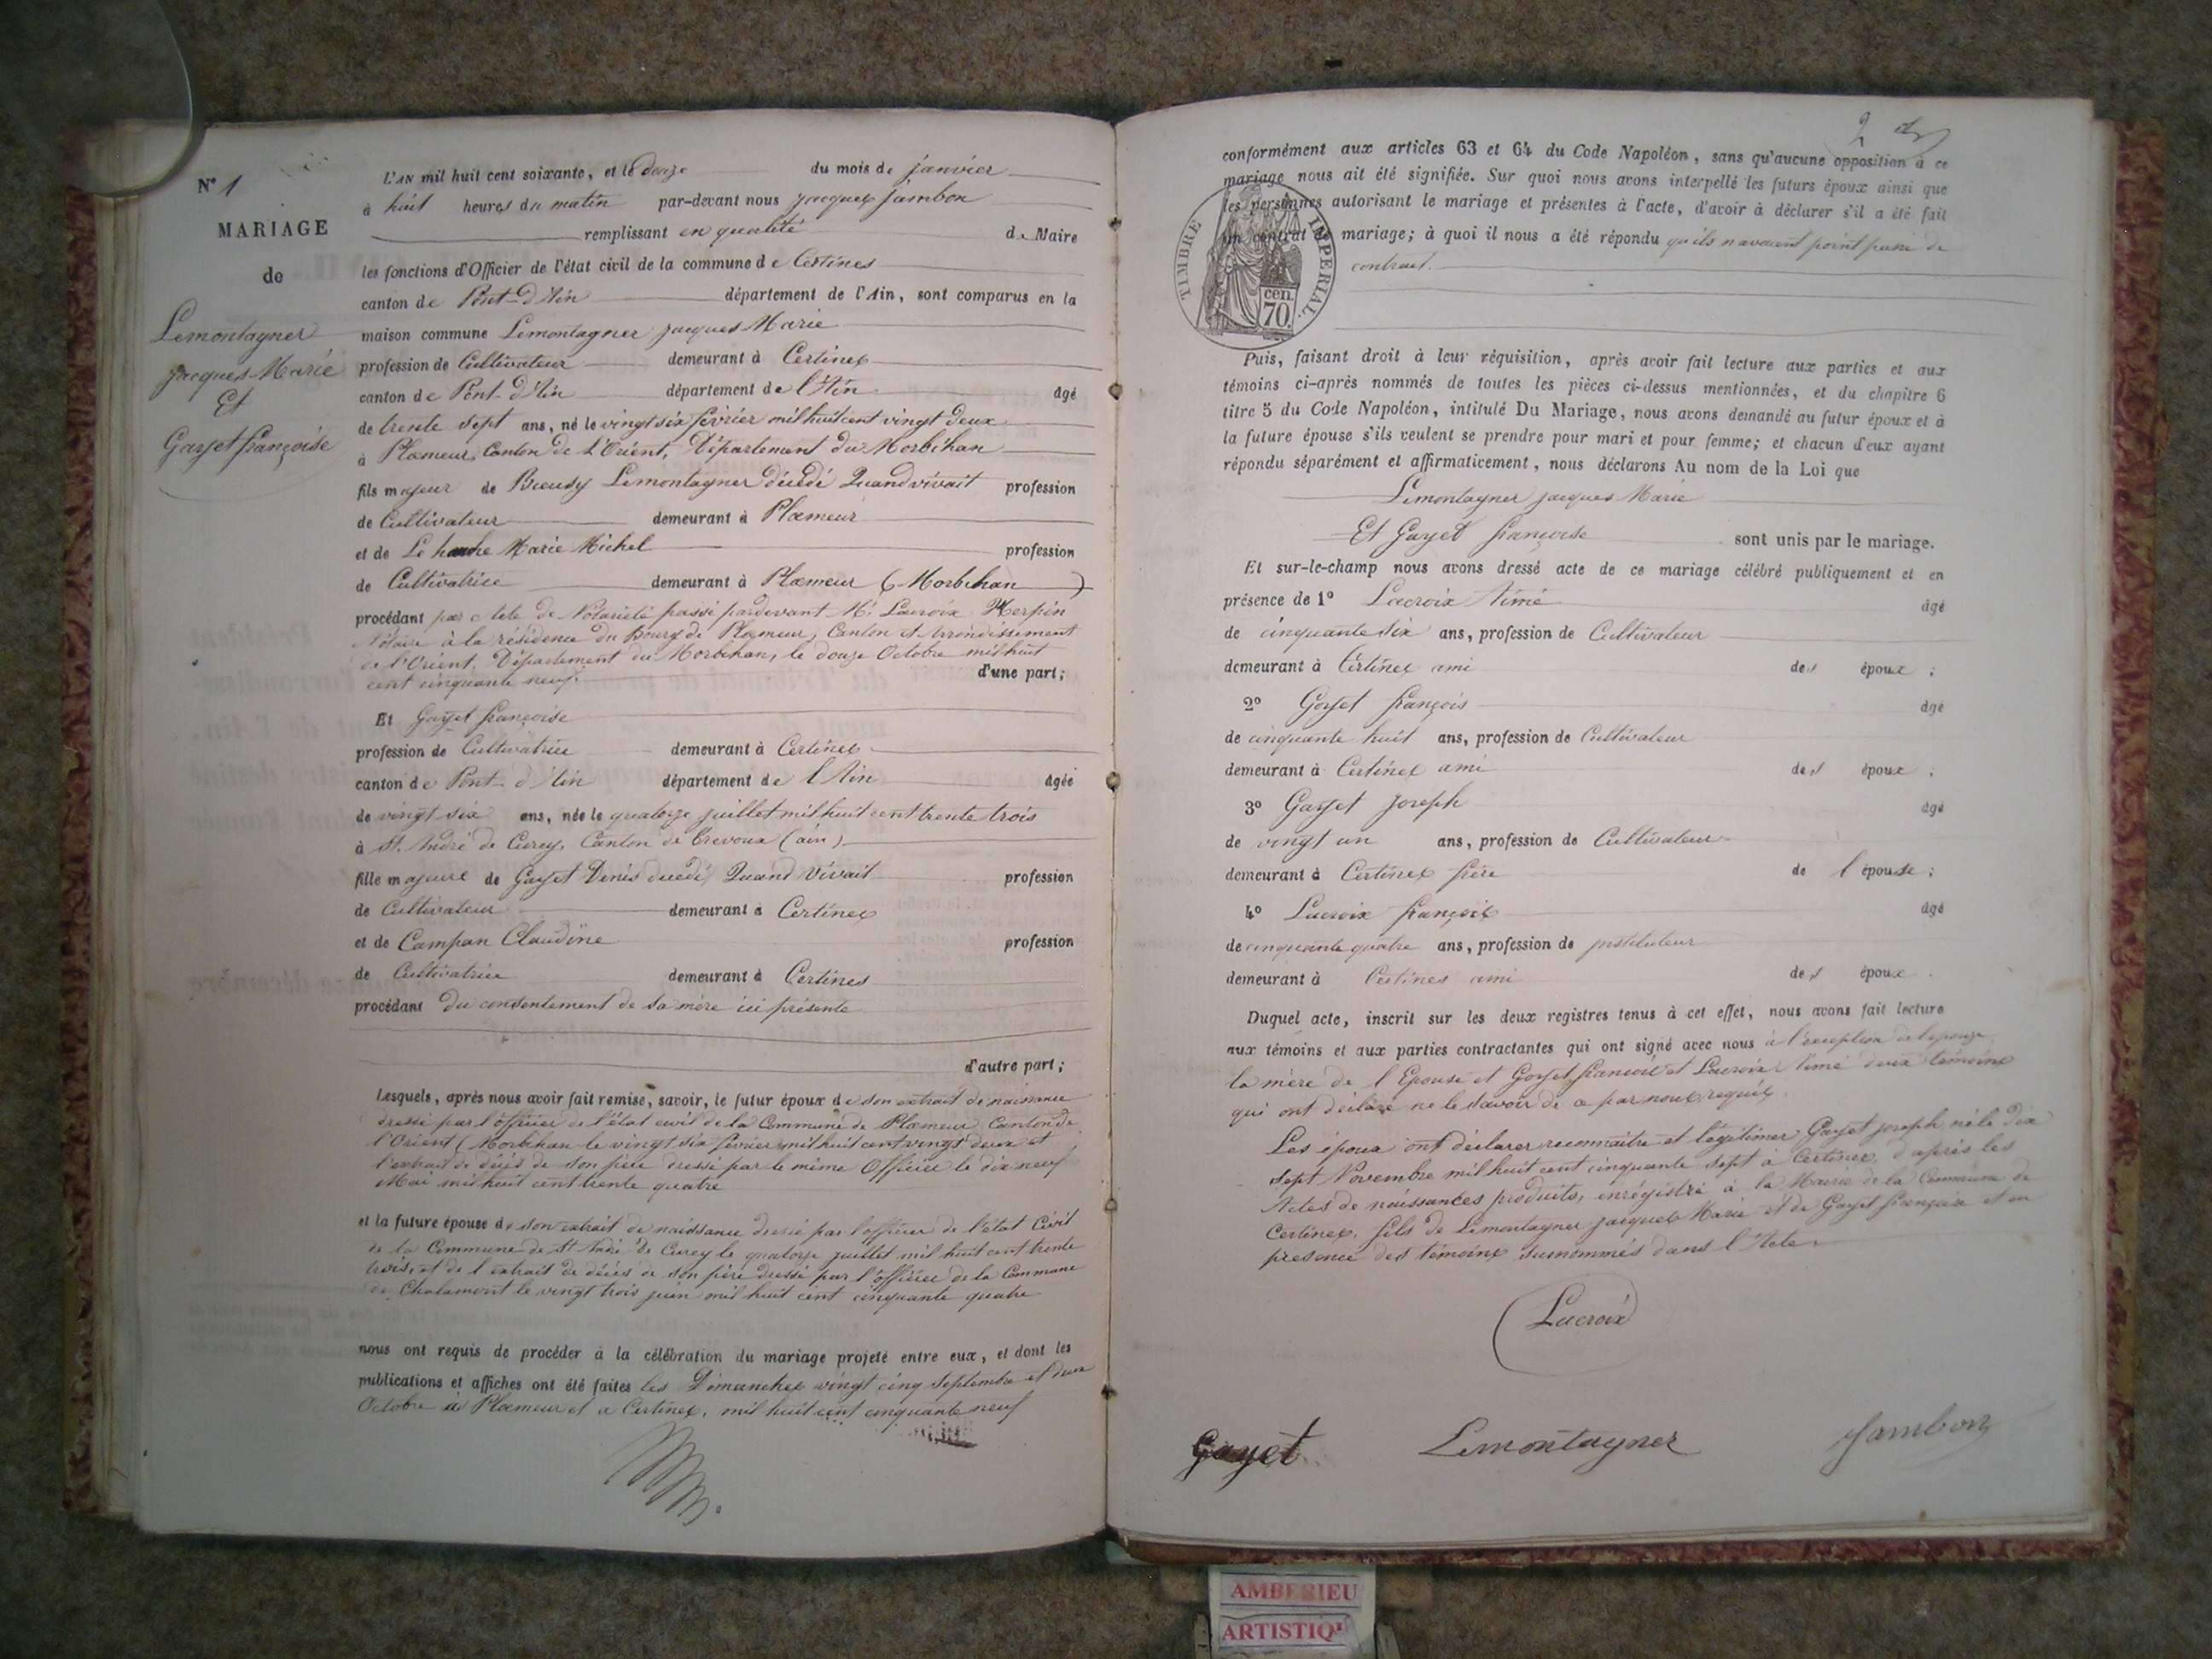 N° 1
MARIAGE
de
Lemontagner
Jacques Marie
Et
Gayet françoise
L'AN mil huit cent soixante, et le douze du mois de janvier
à huit heures du matin par-devant nous jacques Jambon
remplissant en qualité de Maire
les fonctions d'Officier de l'état civil de la commune de Certines
canton de Pont-d'Ain département de l'Ain, sont comparus en la
maison commune Lemontagner jacques Marie
profession de Cultivateur demeurant à Certines
canton de Pont-d'Ain département de l'Ain âgé
de trente sept ans, né le vingt six février mil huit cent vingt deux
à Plœmeur, Canton de L'Orient, Département du Morbihan
fils majeur de Lemontagner décédé Quand vivait profession
de Cultivateur demeurant à Plœmeur
et de Marie Michel profession
de Cultivatrice demeurant à Plœmeur (Morbihan)
procédant par Acte de Notariété passé pardevant Me Lacroix Herpin
Notaire à la résidence du Bourg de Plœmeur, Canton et Arrondissement
de l'Orient, Département du Morbihan, le douze Octobre mil huit
cent cinquante neuf. d'une part;
Et Gayet françoise
profession de Cultivatrice demeurant à Certines
canton de Pont-d'Ain département de l'Ain âgée
de vingt six ans, née le quatorze juillet mil huit cent trente trois
à St. André de Curcy, Canton de Trevoux (ain)
fille majeure de Gayet Denis décédé, Quand Vivait profession
de Cultivateur demeurant à Certines
et de Campan Claudine profession
de Cultivatrice demeurant à Certines
procédant du consentement de sa mère ici présente
d'autre part;
Lesquels, après nous avoir fait remise, savoir, le futur époux de son extrait de naissance
dressé par l'officier de l'état civil de la Commune de Plœmeur Canton de
l'Orient (Morbihan le vingt six février mil huit cent vingt deux et
l'extrait de décès de son père dressé par le même Officier le dix neuf
Mai mil huit cent trente quatre
et la future épouse de son extrait de naissance dressé par l'officier de l'état Civil
de la Commune de St André de Curcy le quatorze juillet mil huit cent trente
trois, et de l'extrait de décès de son père dressé par l'officier de la Commune
de Chalamont le vingt trois juin mil huit cent cinquante quatre
nous ont requis de procéder à la célébration du mariage projeté entre eux, et dont les
publications et affiches ont été faites les Dimanches vingt cinq Septembre et deux
Octobre à Plœmeur et a Certines, mil huit cent cinquante neuf
2
conformément aux articles 63 et 64 du Code Napoléon, sans qu'aucune opposition à ce
mariage nous ait été signifiée. Sur quoi nous avons interpellé les futurs époux ainsi que
les personnes autorisant le mariage et présentes à l'acte, d'avoir à déclarer s'il a été fait
un contrat de mariage; à quoi il nous a été répondu qu'ils n'avaient point passé de
contract.
TIMBRE IMPÉRIAL.
cen.
70.
Puis, faisant droit à leur réquisition, après avoir fait lecture aux parties et aux
témoins ci-après nommés de toutes les pièces ci-dessus mentionnées, et du chapitre 6
titre 5 du Code Napoléon, intitulé Du Mariage, nous avons demandé au futur époux et à
la future épouse s'ils veulent se prendre pour mari et pour femme; et chacun d'eux ayant
répondu séparément et affirmativement, nous déclarons Au nom de la Loi que
Lemontagner jacques Marie
Et Gayet françoise sont unis par le mariage.
Et sur-le-champ nous avons dressé acte de ce mariage célébré publiquement et en
présence de 1° Lacroix Aimé âgé
de cinquante six ans, profession de Cultivateur
demeurant à Certines ami des époux;
2° Gayet françois âgé
de cinquante huit ans, profession de Cultivateur
demeurant à Certines ami des époux;
3° Gayet Joseph âgé
de vingt un ans, profession de Cultivateur
demeurant à Certines frère de l'épouse;
4° Lacroix françois âgé
de cinquante quatre ans, profession de instituteur
demeurant à Certines ami des époux.
Duquel acte, inscrit sur les deux registres tenus à cet effet, nous avons fait lecture
aux témoins et aux parties contractantes qui ont signé avec nous à l'exception de l'épouse,
la mère de l'Epouse et Gayet françois et Lacroix Aimé deux témoins
qui ont déclaré ne le savoir de ce par nous requis.
Les époux ont déclarer reconnaître et légitimer Gayet joseph né le dix
sept Novembre mil huit cent cinquante sept à Certines, d'après les
Actes de naissances produits, enrégistré à la Mairie de la Commune de
Certines, fils de Lemontagner jacques Marie et de Gayet françoise et en
présence des témoins surnommés dans l'Acte.
Lacroix
Gayet Lemontagner Jambon
AMBERIEU
ARTISTIQ